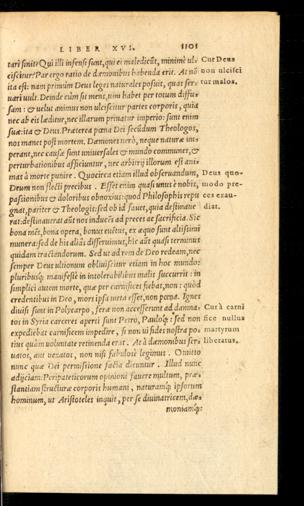 LIBER XVI. 1101
tari sinit? Qui illi infensè sunt, qui ei maledicūt, minimè ul= Cur Deus
ciscitur? Par ergo ratio de dæmonibus habenda erit. At nō non ulcisci
ita est: nam primùm Deus leges naturales posuit, quas ser= tur malos.
vari vult. Deinde cùm sit mens, nim habet per totum diffu=
sam: & velut animus non ulciscitur partes corporis, quia
nec ab eis læditur, nec illarum privatur imperio: sunt enim
suæ: ita & Deus. Præterea pœna Dei secūdum Theologos,
nos manet post mortem. Dæmones verò, neque naturæ im=
perant, nec causæ sunt universales & mundo communes, &
perturbationibus afficiuntur, nec arbitrij illorum est ani=
mas à morte punire. Quocirca etiam illud observandum, Deus quo=
Deum non flecti precibus. Esset enim quasi unus è nobis, modo pre=
passionibus & doloribus obnoxius: quod Philosophis repu ces exau=
gnat, pariter & Theologis: sed ob id favet, quia destinave diat.
rat: destinaverat aūt nos inducēs ad preces ac sacrificia. Sic
bona mēs, bona opera, bonus cultus, ex æquo sunt altissimi
munera: sed de his aliâs disseruimus, hîc aūt quasi terminus
quidam tractandorum. Sed ut ad rem de Deo redeam, nec
semper Deus ultionum obliviscitur etiam in hoc mundo:
pluribusq; manifestè in intolerabilibus malis succurrit: in
simplici autem morte, quæ per carnifices fiebat, non: quòd
credentibus in Deo, mors ipsa meta esset, non pœna. Ignes
divisi sunt in Polycarpo, feræ non accesserunt ad damna= Cur à carni
tos in Syria carceres aperti sunt Petro, Pauloq;: sed non fice nullus
expediebat carnificem impedire, si non vi fides nostra po= martyrum
tius quàm voluntate retinenda erat. At à dæmonibus ser= liberatus.
vatos, aut necatos, non nisi fabulosè legimus. Omitto
nunc quæ Dei permissione facta dicuntur. Illud nunc
adijciam: Peripateticorum opinioni favere multum, præ=
stantiam structuræ corporis humani, naturamq; ipsorum
hominum, ut Aristoteles inquit, per se divinatricem, dæ=
moniamq;: